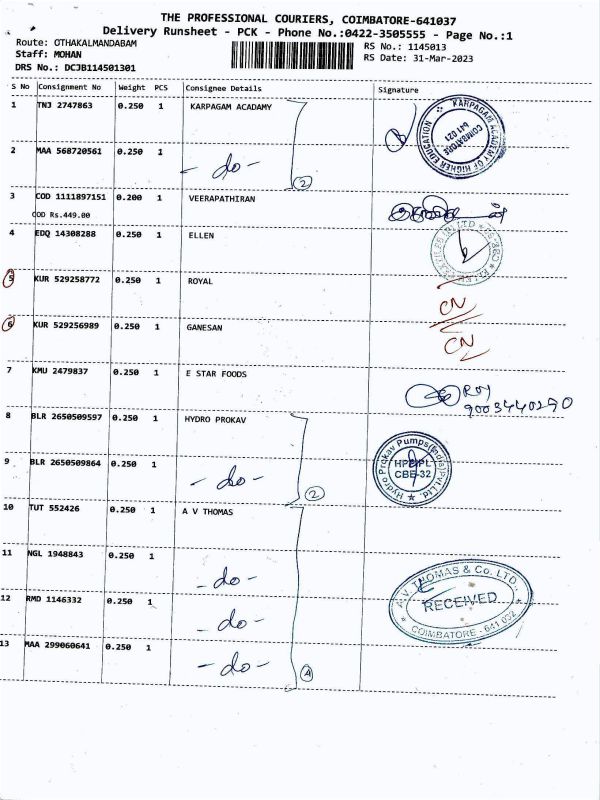 THE PROFESSIONAL COURIERS, COIMBATORE-641037
Delivery Runsheet - PCK - Phone No.:0422-3505555 - Page No.:1
Route: OTHAKALMANDABAM
RS No.: 1145013
Staff: MOHAN
RS Date: 31-Mar-2023
DRS No.: DCJB114501301
S No Consignment No Weight PCS Consignee Details Signature
1 TNJ 2747863 0.250 1 KARPAGAM ACADAMY
KARPAGAM ACADEMY OF HIGHER EDUCATION
COIMBATORE
641 021
2 MAA 568720561 0.250 1 - do -
2
3 COD 1111897151 0.200 1 VEERAPATHIRAN
COD Rs.449.00
4 EDQ 14308288 0.250 1 ELLEN
5 KUR 529258772 0.250 1 ROYAL CN
6 KUR 529256989 0.250 1 GANESAN CN
7 KMU 2479837 0.250 1 E STAR FOODS
ROY
9003440290
8 BLR 2650509597 0.250 1 HYDRO PROKAV
Hydro Prokav Pumps(India)Pvt.Ltd.
CBE-32
9 BLR 2650509864 0.250 1 - do -
2
10 TUT 552426 0.250 1 A V THOMAS
11 NGL 1948843 0.250 1 - do -
A.V. THOMAS & Co. LTD.,
RECEIVED
COIMBATORE - 641 032
12 RMD 1146332 0.250 1 - do -
13 MAA 299060641 0.250 1 - do -
4